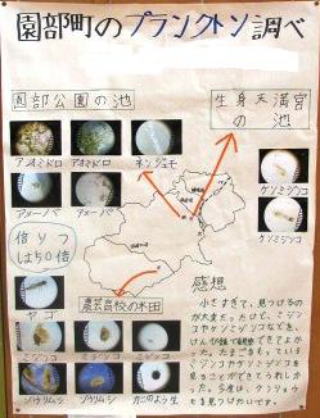 園部町のプランクトン調べ
園部公園の池
生身天満宮
の池
アオミドロ
アオミドロ
ネンジュモ
アメーバ
アメーバ
ケンミジンコ
ケンミジンコ
倍りつ
は50倍
農芸高校の水田
ヤゴ
ミジンコ
ミジンコ
ミジンコ
ゾウリムシ
ゾウリムシ
カニのよう生
感想
小さすぎて、見つけるの
が大変だったけど、ミジン
コやケンミジンコなどを、
けんび鏡で観察できてよか
った。たまごをもっている
ミジンコやケンミジンコを
見ることができてうれしか
った。今度は、クンショウ
モを見つけたいです。